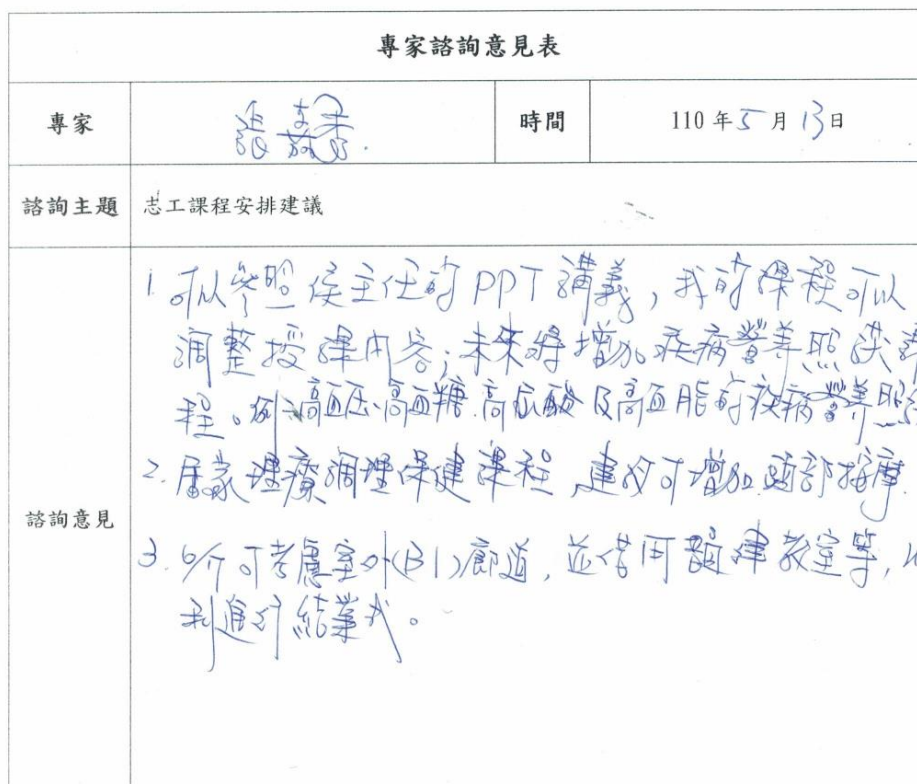 專家諮詢意見表
專家
時間
110 年 5 月 13 日
諮詢主題
志工課程安排建議
諮詢意見
1. 可以參照侯主任的PPT講義,我的課程可以
調整授課內容;未來將增加疾病營養照護課
程。例:高血壓、高血糖、高尿酸及高血脂的疾病營養照
2. 居家理療調理保健課程,建議可增加頭部按摩.
3. 可考慮室外(B1)廊道,並借用韻律教室等,以
利進行結業式。